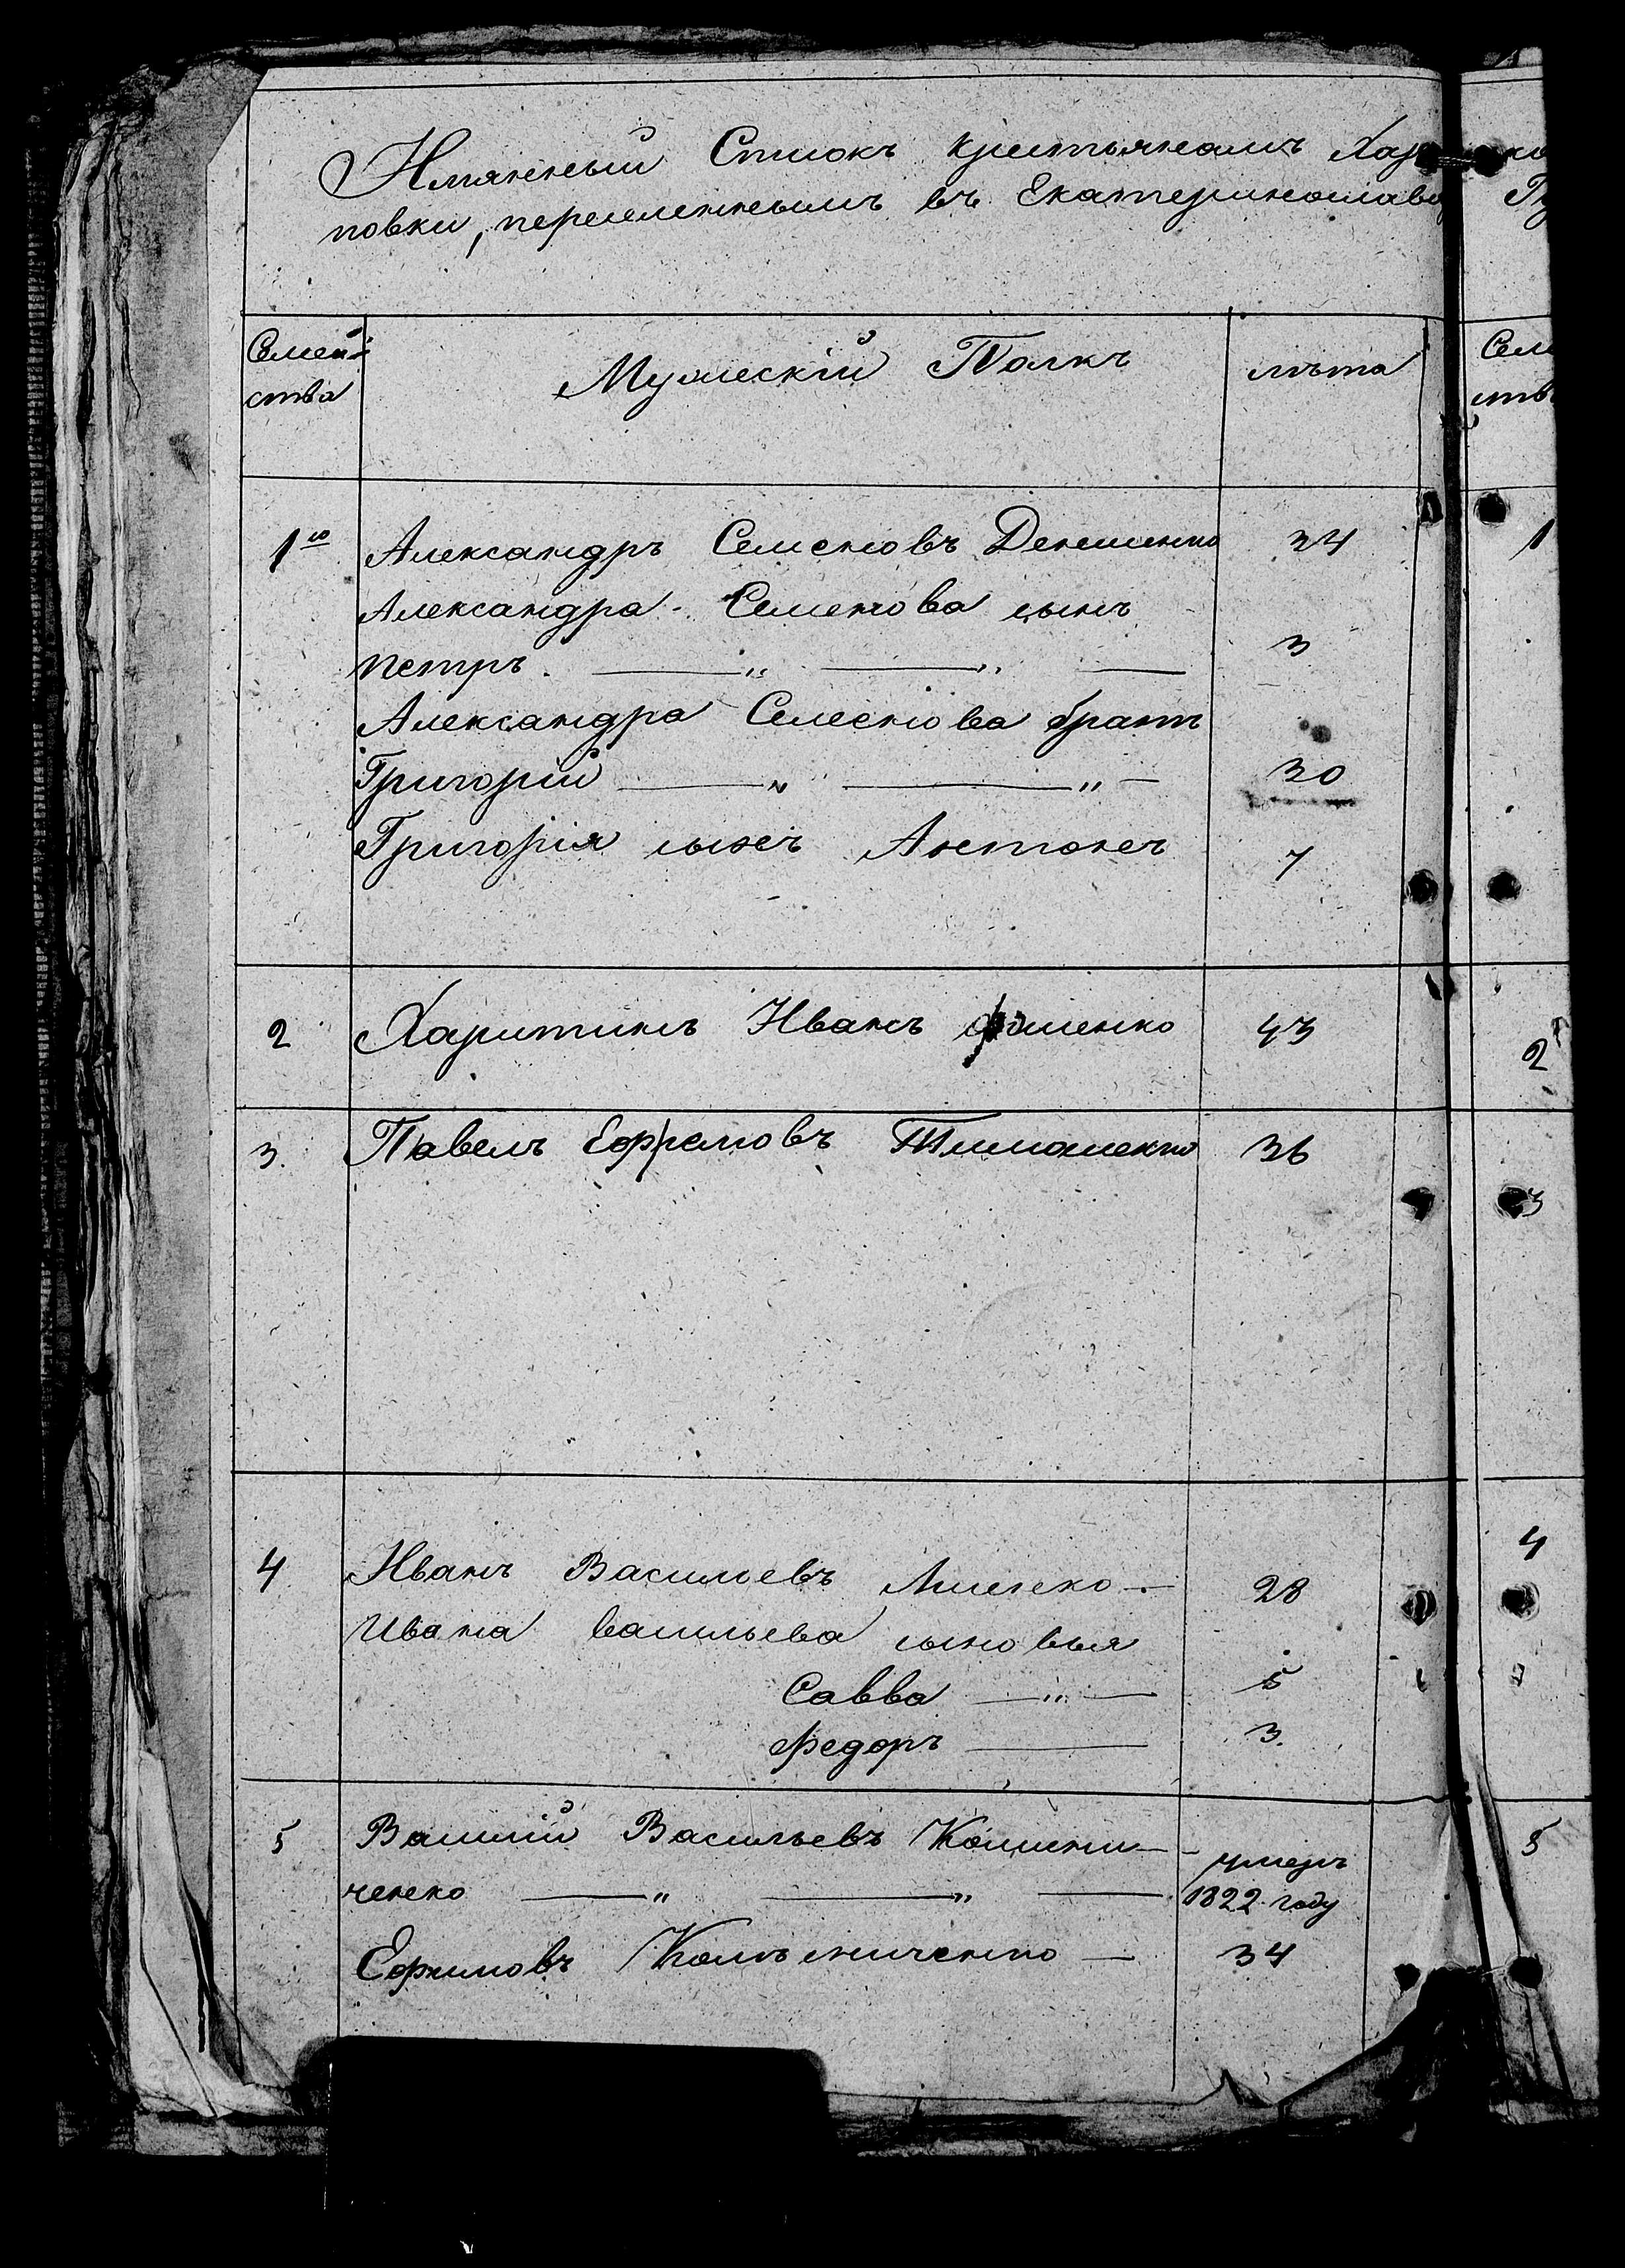 Имянный Списокъ крестьянамъ Хар
повки, переселеннымъ въ Екатеринослав
Семей=
ства
Мужескій Полкъ
лѣта
1ю Александръ Семеновъ Денешенко 34
Александра Семенова сынъ
Петръ 3
Александра Семенова братъ
Григорій 30
Григорія сынъ Антонъ 7
2 Харитинъ Иванъ Фоменко 43
3. Павелъ Ефремовъ Тимошенко 36
4 Иванъ Васильевъ Лисенко 28
Ивана Васильева сыновья
Савва 5
Федоръ 3.
5 Василій Васильевъ Колесни-
ченко умеръ
1822 году
Ефимовъ Колесниченко 34
Сем
ств
1
2
3
4
5